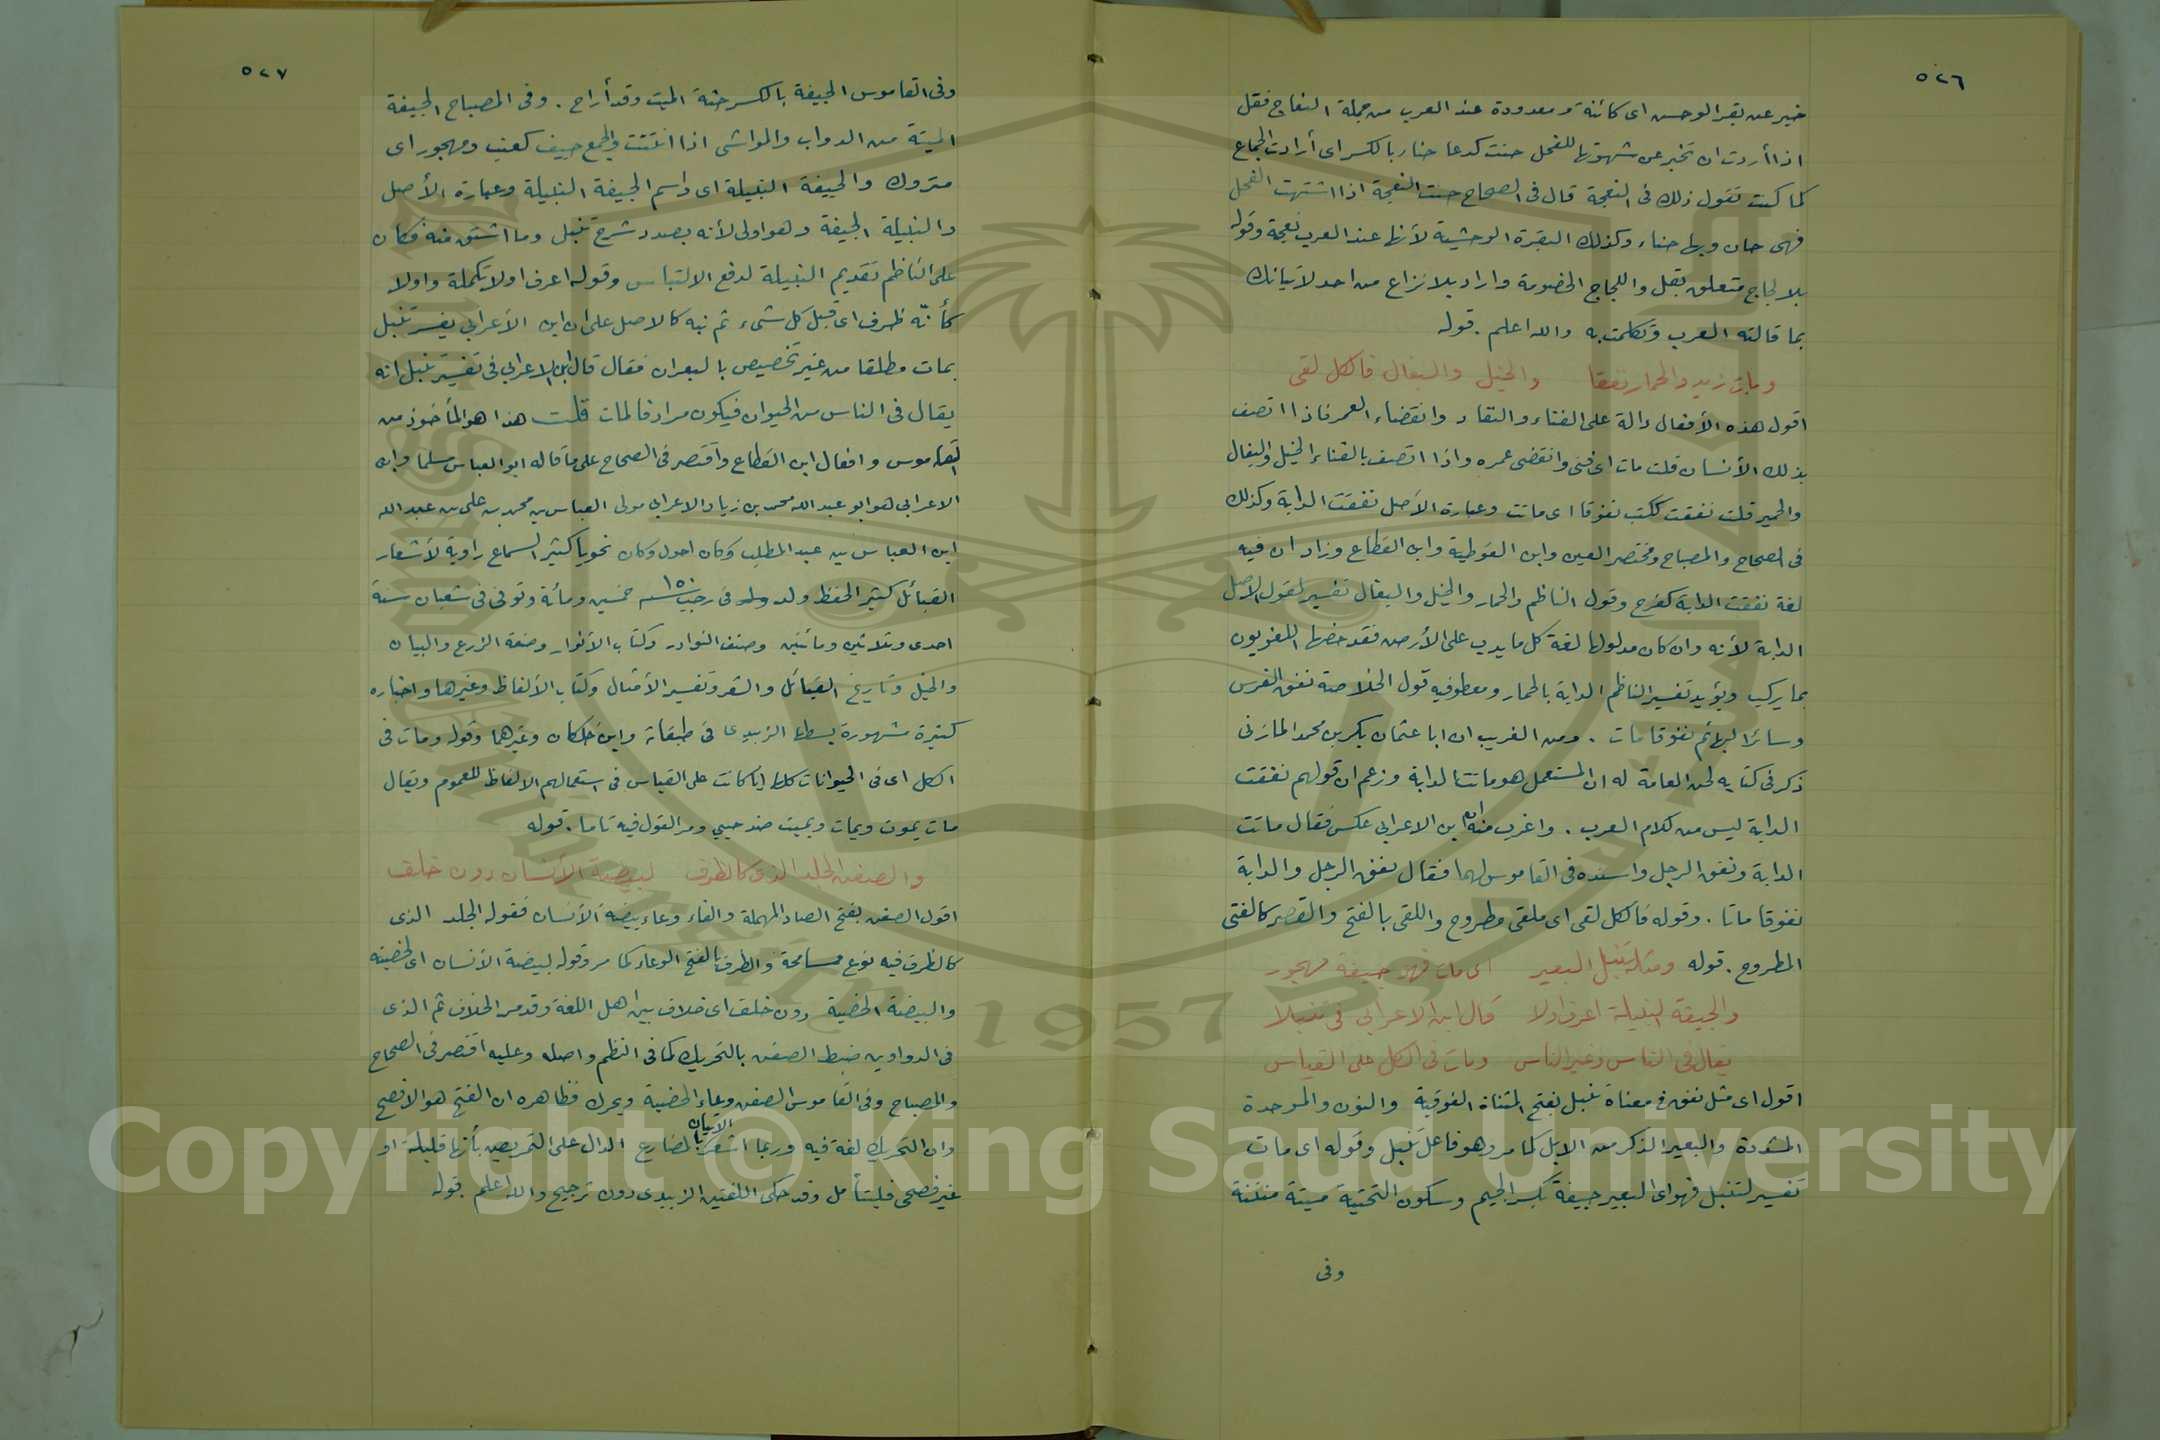 ٥٢٦
خبر عن بقر الوحش اى كائنة ومعدودة عند العرب من جملة النعاج فقل
اذا أردت ان تخبر عن شهوتها للفحل حنت كدعا حناء بالكسر اى أرادت الجماع
كما كنت تقول ذلك فى النعجة قال فى الصحاح حنت النعجة اذا اشتهت الفحل
فهى حان وبها حناء وكذلك البقرة الوحشية لأنها عند العرب نعجة وقوله
بلا لجاج متعلق بقل واللجاج الخصومة واراد بلا نزاع من احد لاتيانك
بما قالته العرب وتكلمت به والله اعلم . قوله
ومات زيد والحمار نفقا والخيل والبغال فالكل لقى
اقول هذه الأفعال دالة على الفناء والنفاد وانقضاء العمر فاذا اتصف
بذلك الأنسان قلت مات اى فنى وانقضى عمره واذا اتصف بالفناء الخيل والبغال
والحمير قلت نفقت ككتب نفوقا اى ماتت وعبارة الأصل نفقت الدابة وكذلك
فى الصحاح والمصباح ومختصر العين وابن القوطية وابن القطاع وزاد ان فيه
لغة نفقت الدابة كفرح وقول الناظم والحمار والخيل والبغال تفسير لقول الأصل
الدابة لأنه وان كان مدلولها لغة كل ما يدب على الأرض فقد خصها اللغويون
بما يركب ويؤيد تفسير الناظم الدابة بالحمار ومعطوفيه قول الخلاصة نفق الفرس
وسائر البهائم نفوقا مات . ومن الغريب ان ابا عثمان بكر بن محمد المازنى
ذكر فى كتابه لحن العامة له ان المستعمل هو ماتت الدابة وزعم ان قولهم نفقت
الدابة ليس من كلام العرب . واغرب منه ان ابن الاعرابى عكس فقال ماتت
الدابة ونفق الرجل واسنده فى القاموس لهما فقال نفق الرجل والدابة
نفوقا ماتا . وقوله فالكل لقى اى ملقى مطروح واللقى بالفتح والقصر كالفتى
المطروح . قوله ومثله تنبل البعير اى مات فهو جيفة مهجور
والجيفة النبيلة اعرف اولا قال ابن الاعرابى فى تنبلا
يقال فى الناس وغير الناس ومات فى الكل على القياس
اقول اى مثل نفق فى معناه تنبل بفتح المثناة الفوقية والنون والموحدة
المشددة والبعير الذكر من الابل كما مر وهو فاعل تنبل وقوله اى مات
تفسير لتنبل فهو اى البعير جيفة بكسر الجيم وسكون التحتية ميتة منتنة
وفى
٥٢٧
وفى القاموس الجيفة بالكسر جثة الميت وقد أراح . وفى المصباح الجيفة
الميتة من الدواب والمواشى اذا انتنت والجمع جيف كعنب ومهجور اى
متروك والجيفة النبيلة اى واسم الجيفة النبيلة وعبارة الأصل
والنبيلة الجيفة وهو اولى لأنه بصدد شرح تنبل وما اشتق منه فكان
على الناظم تقديم النبيلة لدفع الالتباس وقوله اعرف اولا تكملة واولا
كأنه ظرف اى قبل كل شىء ثم نبه كالاصل على ان ابن الأعرابى يفسر تنبل
بمات مطلقا من غير تخصيص بالبعران فقال قال ابن الاعرابى فى تفسير تنبل انه
يقال فى الناس من الحيوان فيكون مرادفا لمات قلت هذا هو المأخوذ من
القاموس وافعال ابن القطاع واقتصر فى الصحاح على ما قاله ابو العباس مسلما وابن
الاعرابى هو ابو عبد الله محمد بن زياد الاعرابى مولى العباس بن محمد بن على بن عبد الله
ابن العباس بن عبد المطلب وكان احول وكان نحويا كثير السماع راوية لأشعار
القبائل كثير الحفظ ولد فى رجب سنة ١٥٠ خمسين ومائة وتوفى فى شعبان سنة
احدى وثلاثين ومائتين وصنف النوادر وكتاب الأنوار وصفة الزرع والبيان
والخيل وتاريخ القبائل والشعر وتفسير الأمثال وكتاب الألفاظ وغيرها واخباره
كثيرة مشهورة بسطها الزبيدى فى طبقاته وابن خلكان وغيرهما وقوله ومات فى
الكل اى فى الحيوانات كلها ايا كانت على القياس فى استعمالهم الالفاظ للعموم ويقال
مات يموت ويمات ويميت ضد حيى ومر القول فيه تاما . قوله
والصفن الجلد الذى كالظرف لبيضة الأنسان دون خلف
اقول الصفن بفتح الصاد المهملة والفاء وعاء بيضة الأنسان فقوله الجلد الذى
كالظرف فيه نوع مسامحة والظرف بالفتح الوعاء كما مر وقوله لبيضة الأنسان اى لخصيته
والبيضة الخصية دون خلف اى خلاف بين اهل اللغة وقد مر الخلاف ثم الذى
فى الدواوين ضبط الصفن بالتحريك كما فى النظم واصله وعليه اقتصر فى الصحاح
والمصباح وفى القاموس الصفن وعاء الخصية ويحرك فظاهره ان الفتح هو الافصح
وان التحريك لغة فيه وربما اشعر الاتيان بالمضارع الدال على التمريض بأنها قليلة او
غير فصحى فليتأمل وقد حكى اللغتين الزبيدى دون ترجيح والله اعلم . قوله
Copyright © King Saud University
1957